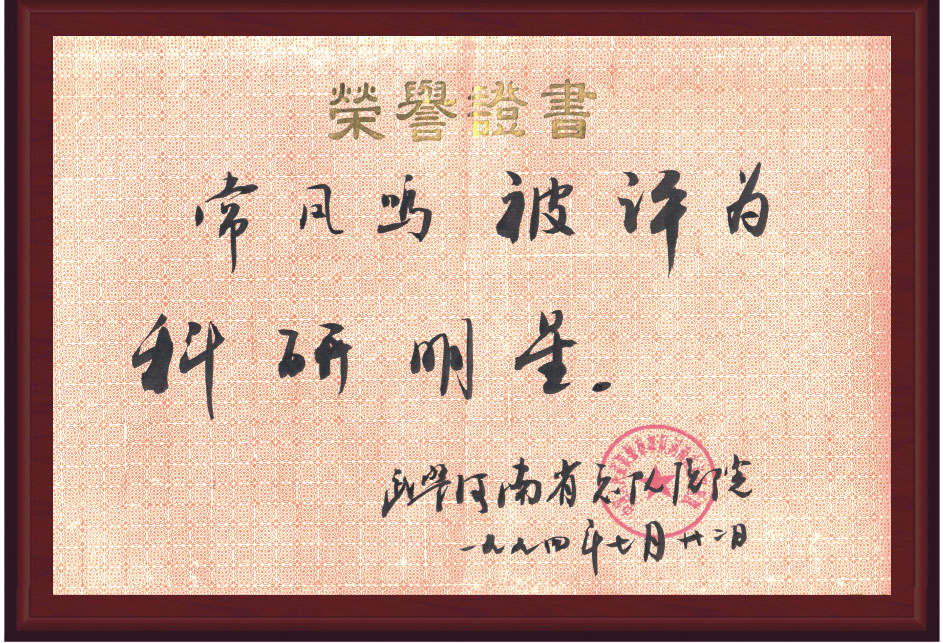 榮譽證書
常凤鸣 被评为
科研明星.
武警河南省总队医院
一九九四年七月廿二日